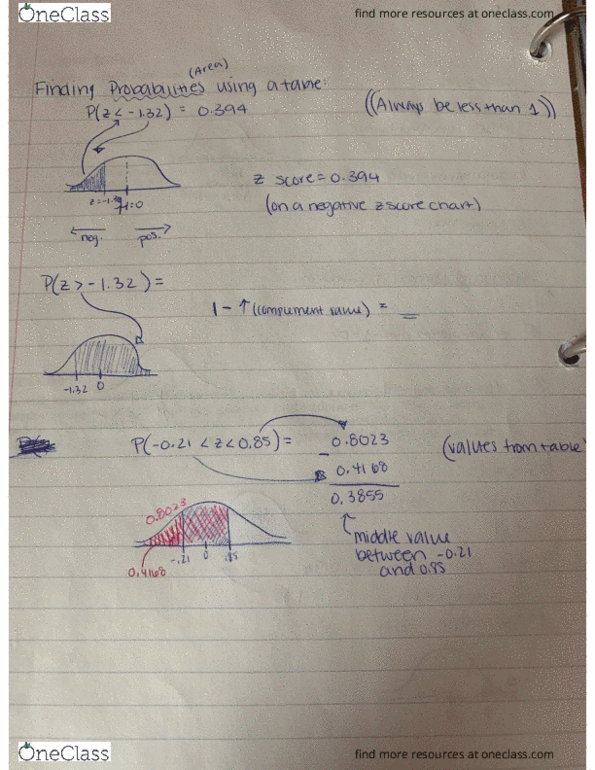 OneClass
find more resources at oneclass.com
(Area)
Finding Probabilities using a table:
P(z < -1.32) = 0.394
((Always be less than 1))
z score = 0.394
(on a negative z score chart)
μ=0
neg.
pos.
P(z > -1.32) =
1 - ↑ (compliment value) = __
-1.32 0
P(-0.21 < z < 0.85) = 0.8023
(values from table
- 0.4168
0.3855
0.8023
middle value
between -0.21
and 0.85
-.21 0 .85
0.4168
OneClass
find more resources at oneclass.com